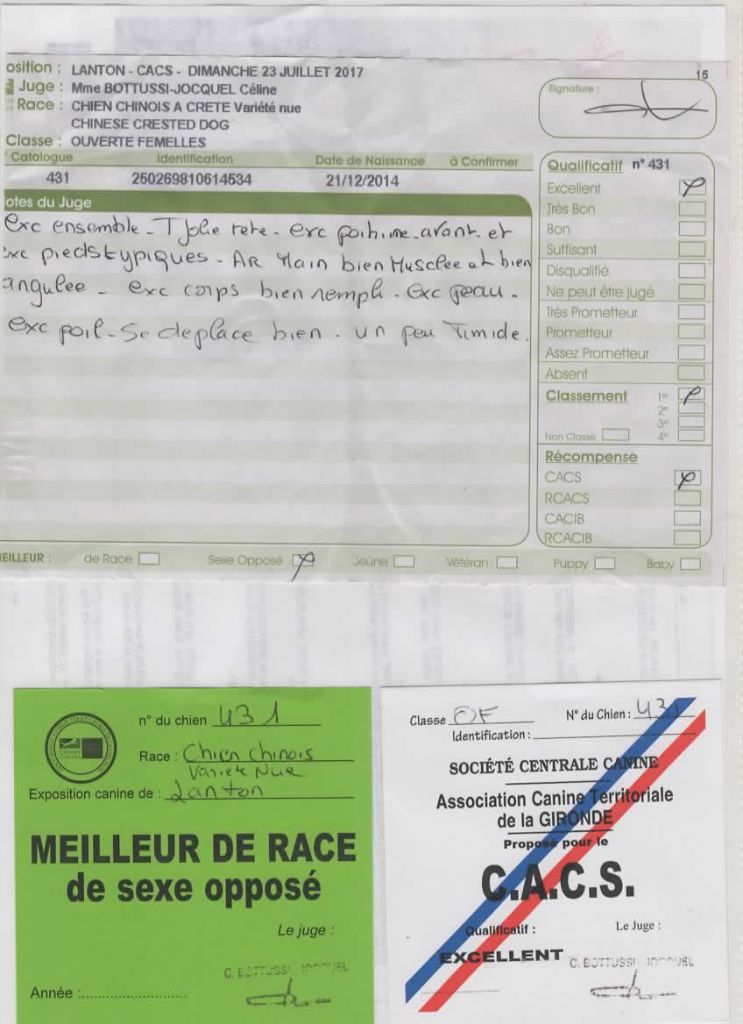 osition : LANTON - CACS - DIMANCHE 23 JUILLET 2017
15
Juge : Mme BOTTUSSI-JOCQUEL Céline
Race : CHIEN CHINOIS A CRETE Variété nue
CHINESE CRESTED DOG
Classe : OUVERTE FEMELLES
Signature :
Catalogue Identification Date de Naissance à Confirmer
431 250269810614534 21/12/2014
otes du Juge
exc ensemble - T Jolie tete - exc poitrine. avant et
exc pieds typiques - AR Main bien Musclee et bien
angulee - exc corps bien rempli - exc peau -
exc poil - Se deplace bien. un peu Timide.
Qualificatif n° 431
Excellent
Très Bon
Bon
Suffisant
Disqualifié
Ne peut être jugé
Très Prometteur
Prometteur
Assez Prometteur
Absent
Classement 1er
2e
3e
Non Classé 4e
Récompense
CACS
RCACS
CACIB
RCACIB
MEILLEUR : de Race Sexe Opposé Jeune Vétéran Puppy Baby
n° du chien 431
Race : Chien Chinois
Variete Nue
Exposition canine de : Lanton
MEILLEUR DE RACE
de sexe opposé
Le juge :
C. BOTTUSSI JOCQUEL
Année :
Classe OF N° du Chien : 431
Identification :
SOCIÉTÉ CENTRALE CANINE
Association Canine Territoriale
de la GIRONDE
Proposé pour le
C.A.C.S.
Qualificatif : Le Juge :
EXCELLENT
C. BOTTUSSI JOCQUEL